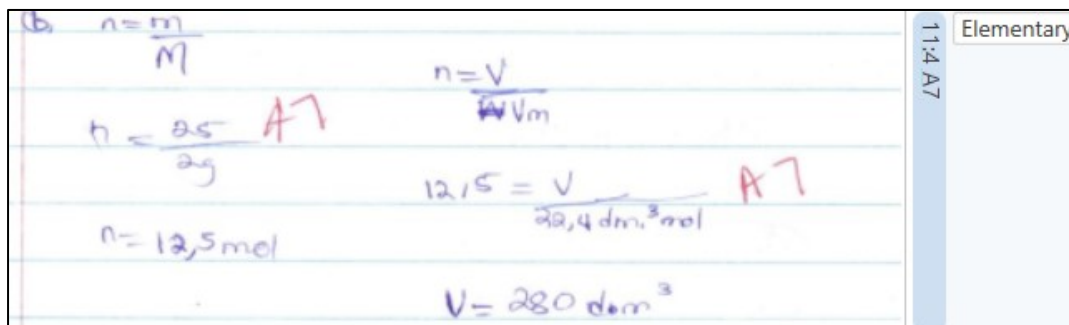 (b) n = m
M
n = 25 A7
2g
n = 12,5 mol
n = V
Vm
12,5 = V A7
22,4 dm.³mol
V = 280 dm³
11:4 A7
Elementary